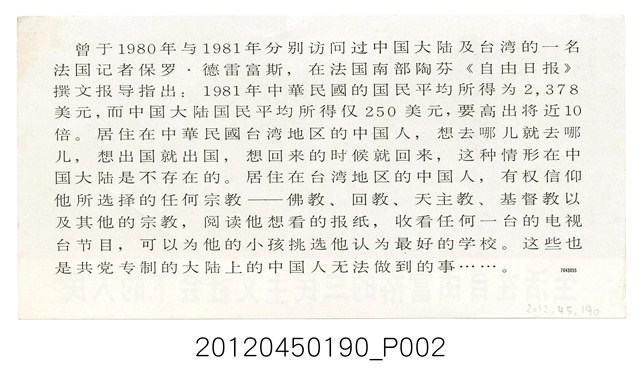 曾于1980年与1981年分别访问过中国大陆及台湾的一名
法国记者保罗·德雷富斯，在法国南部陶芬《自由日报》
撰文报导指出：1981年中華民國的国民平均所得为2,378
美元，而中国大陆国民平均所得仅250美元，要高出将近10
倍。居住在中華民國台湾地区的中国人，想去哪儿就去哪
儿，想出国就出国，想回来的时候就回来，这种情形在中
国大陆是不存在的。居住在台湾地区的中国人，有权信仰
他所选择的任何宗教——佛教、回教、天主教、基督教以
及其他的宗教，阅读他想看的报纸，收看任何一台的电视
台节目，可以为他的小孩挑选他认为最好的学校。这些也
是共党专制的大陆上的中国人无法做到的事……。
7043035
2012.45.190
20120450190_P002